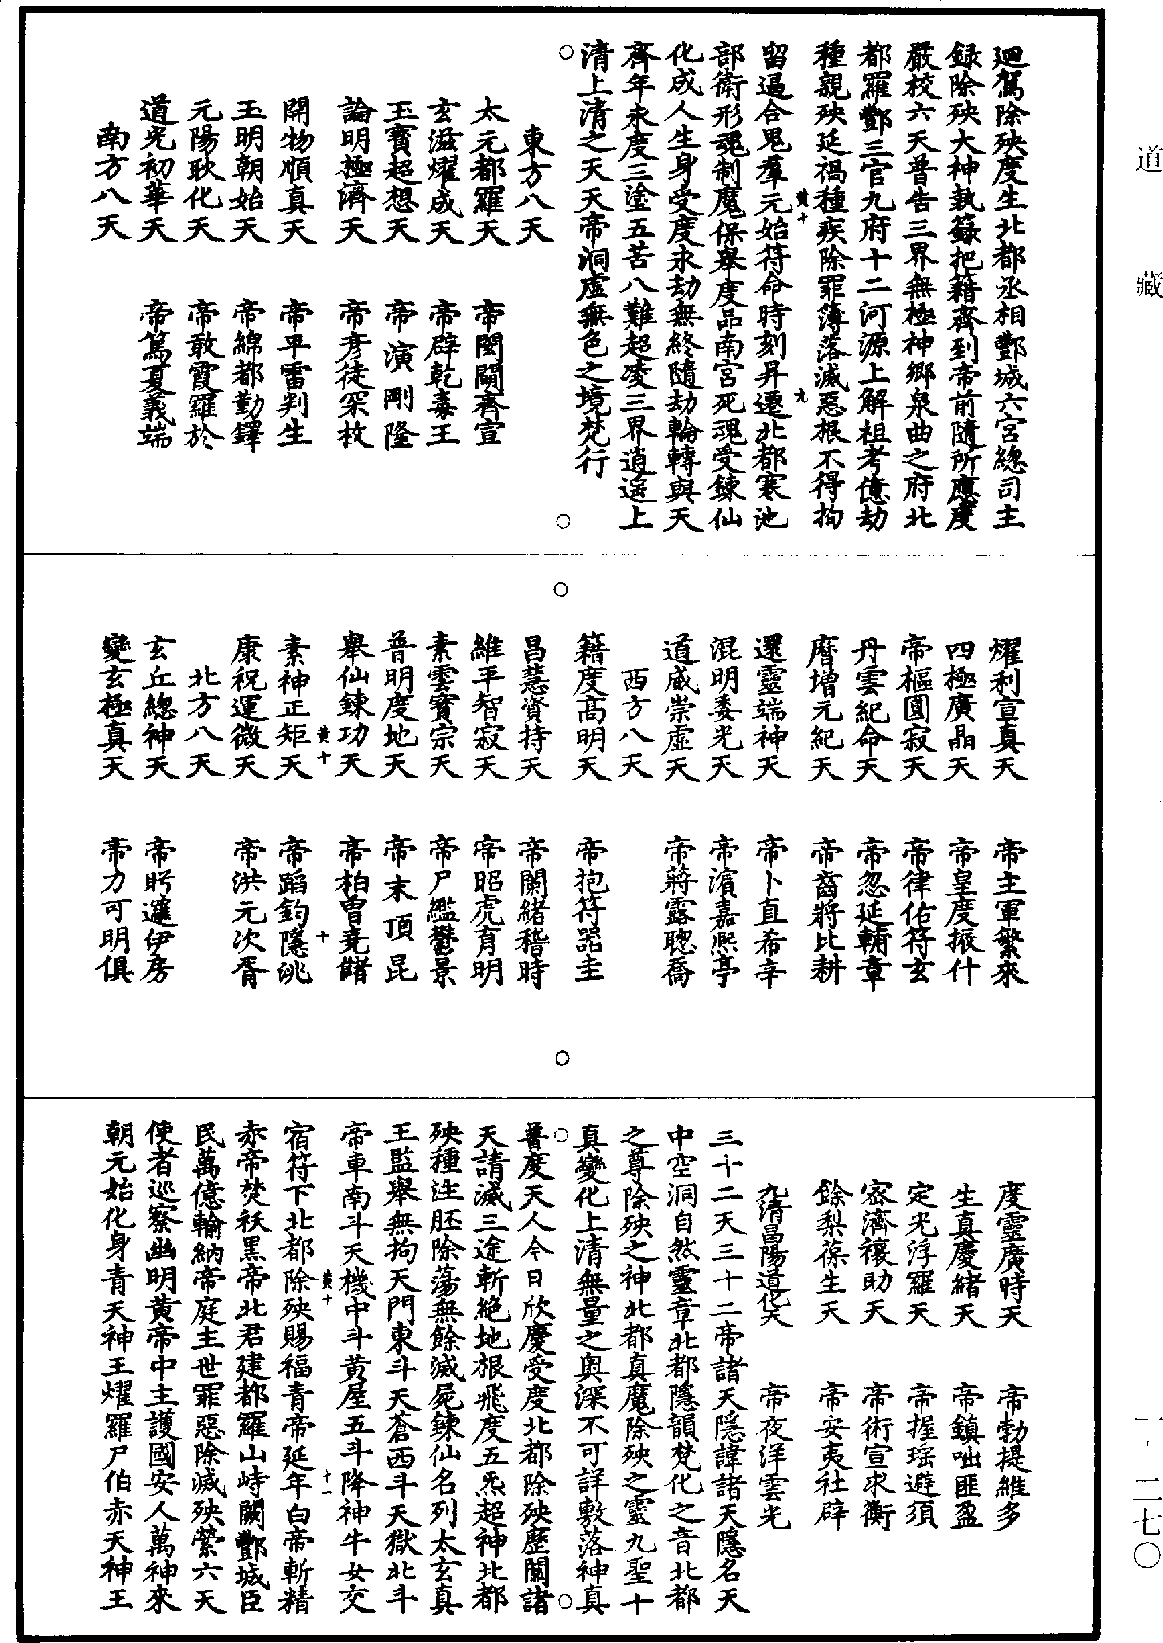 道藏
迴駕除殃度生北都丞相酆城六宮總司主
録除殃大神執籙把籍齊到帝前隨所應度
嚴校六天普告三界無極神鄉泉曲之府北
都羅酆三官九府十二河源上解祖考億劫
種親殃延禍種疾除罪簿落滅惡根不得拘
黃十 九
留逼合鬼羣元始符命時刻昇遷北都寒池
部衛形魂制魔保舉度品南宮死魂受鍊仙
化成人生身受度永劫無終隨劫輪轉與天
齊年永度三塗五苦八難超凌三界逍遥上
清上清之天天帝洞虛無色之境梵行
東方八天
太元都羅天 帝閔闢齊宣
玄滋燿成天 帝辟乾毒王
玉寶超想天 帝演剛隆
論明極濟天 帝彦徒罙枚
開物順真天 帝平雷判生
玉明朝始天 帝綿都勤鐸
元陽耿化天 帝敢霞羅於
道光初華天 帝篤夏義端
南方八天
燿利宣真天 帝主軍繁來
四極廣晶天 帝皇度振什
帝樞圓寂天 帝律佑符玄
丹雲紀命天 帝忽延輔章
曆增元紀天 帝齒將比耕
還靈端神天 帝卜直希辛
混明委光天 帝濱嘉熙亭
道威崇虛天 帝蔣露聰喬
西方八天
籍度高明天 帝抱符器圭
昌慧資持天 帝闌緒稽時
維平智寂天 帝昭虎育明
素雲寶宗天 帝尸鑑鬱景
普明度地天 帝末頂昆
舉仙鍊功天 帝柏曾竟儲
黃十 十
素神正矩天 帝蹈鈞隱洮
康祝運微天 帝洪元次胥
北方八天
玄丘總神天 帝盻邃伊房
變玄極真天 帝力可明俱
度靈廣時天 帝勃提維多
生真慶緒天 帝鎮咄匪盈
定光浮羅天 帝握瑶避須
宻濟禳助天 帝術宣求衡
餘梨葆生天 帝安夷社辟
九清昌陽道化天 帝夜洋雲光
三十二天三十二帝諸天隱諱諸天隱名天
中空洞自然靈章北都隱韻梵化之音北都
之尊除殃之神北都真魔除殃之靈九聖十
真變化上清無量之奥深不可詳敷落神真
普度天人今日欣慶受度北都除殃歷關諸
天請滅三途斬絶地根飛度五炁超神北都
殃種注胚除蕩無餘滅屍鍊仙名列太玄真
王監舉無拘天門東斗天蒼西斗天獄北斗
帝車南斗天機中斗黄屋五斗降神牛女交
黃十 十一
宿符下北都除殃賜福青帝延年白帝斬精
赤帝焚袄黑帝北君建都羅山峙闕酆城臣
民萬億輸納帝庭主世罪惡除滅殃縈六天
使者巡察幽明黄帝中主護國安人萬神來
朝元始化身青天神王燿羅尸伯赤天神王
一·二七〇